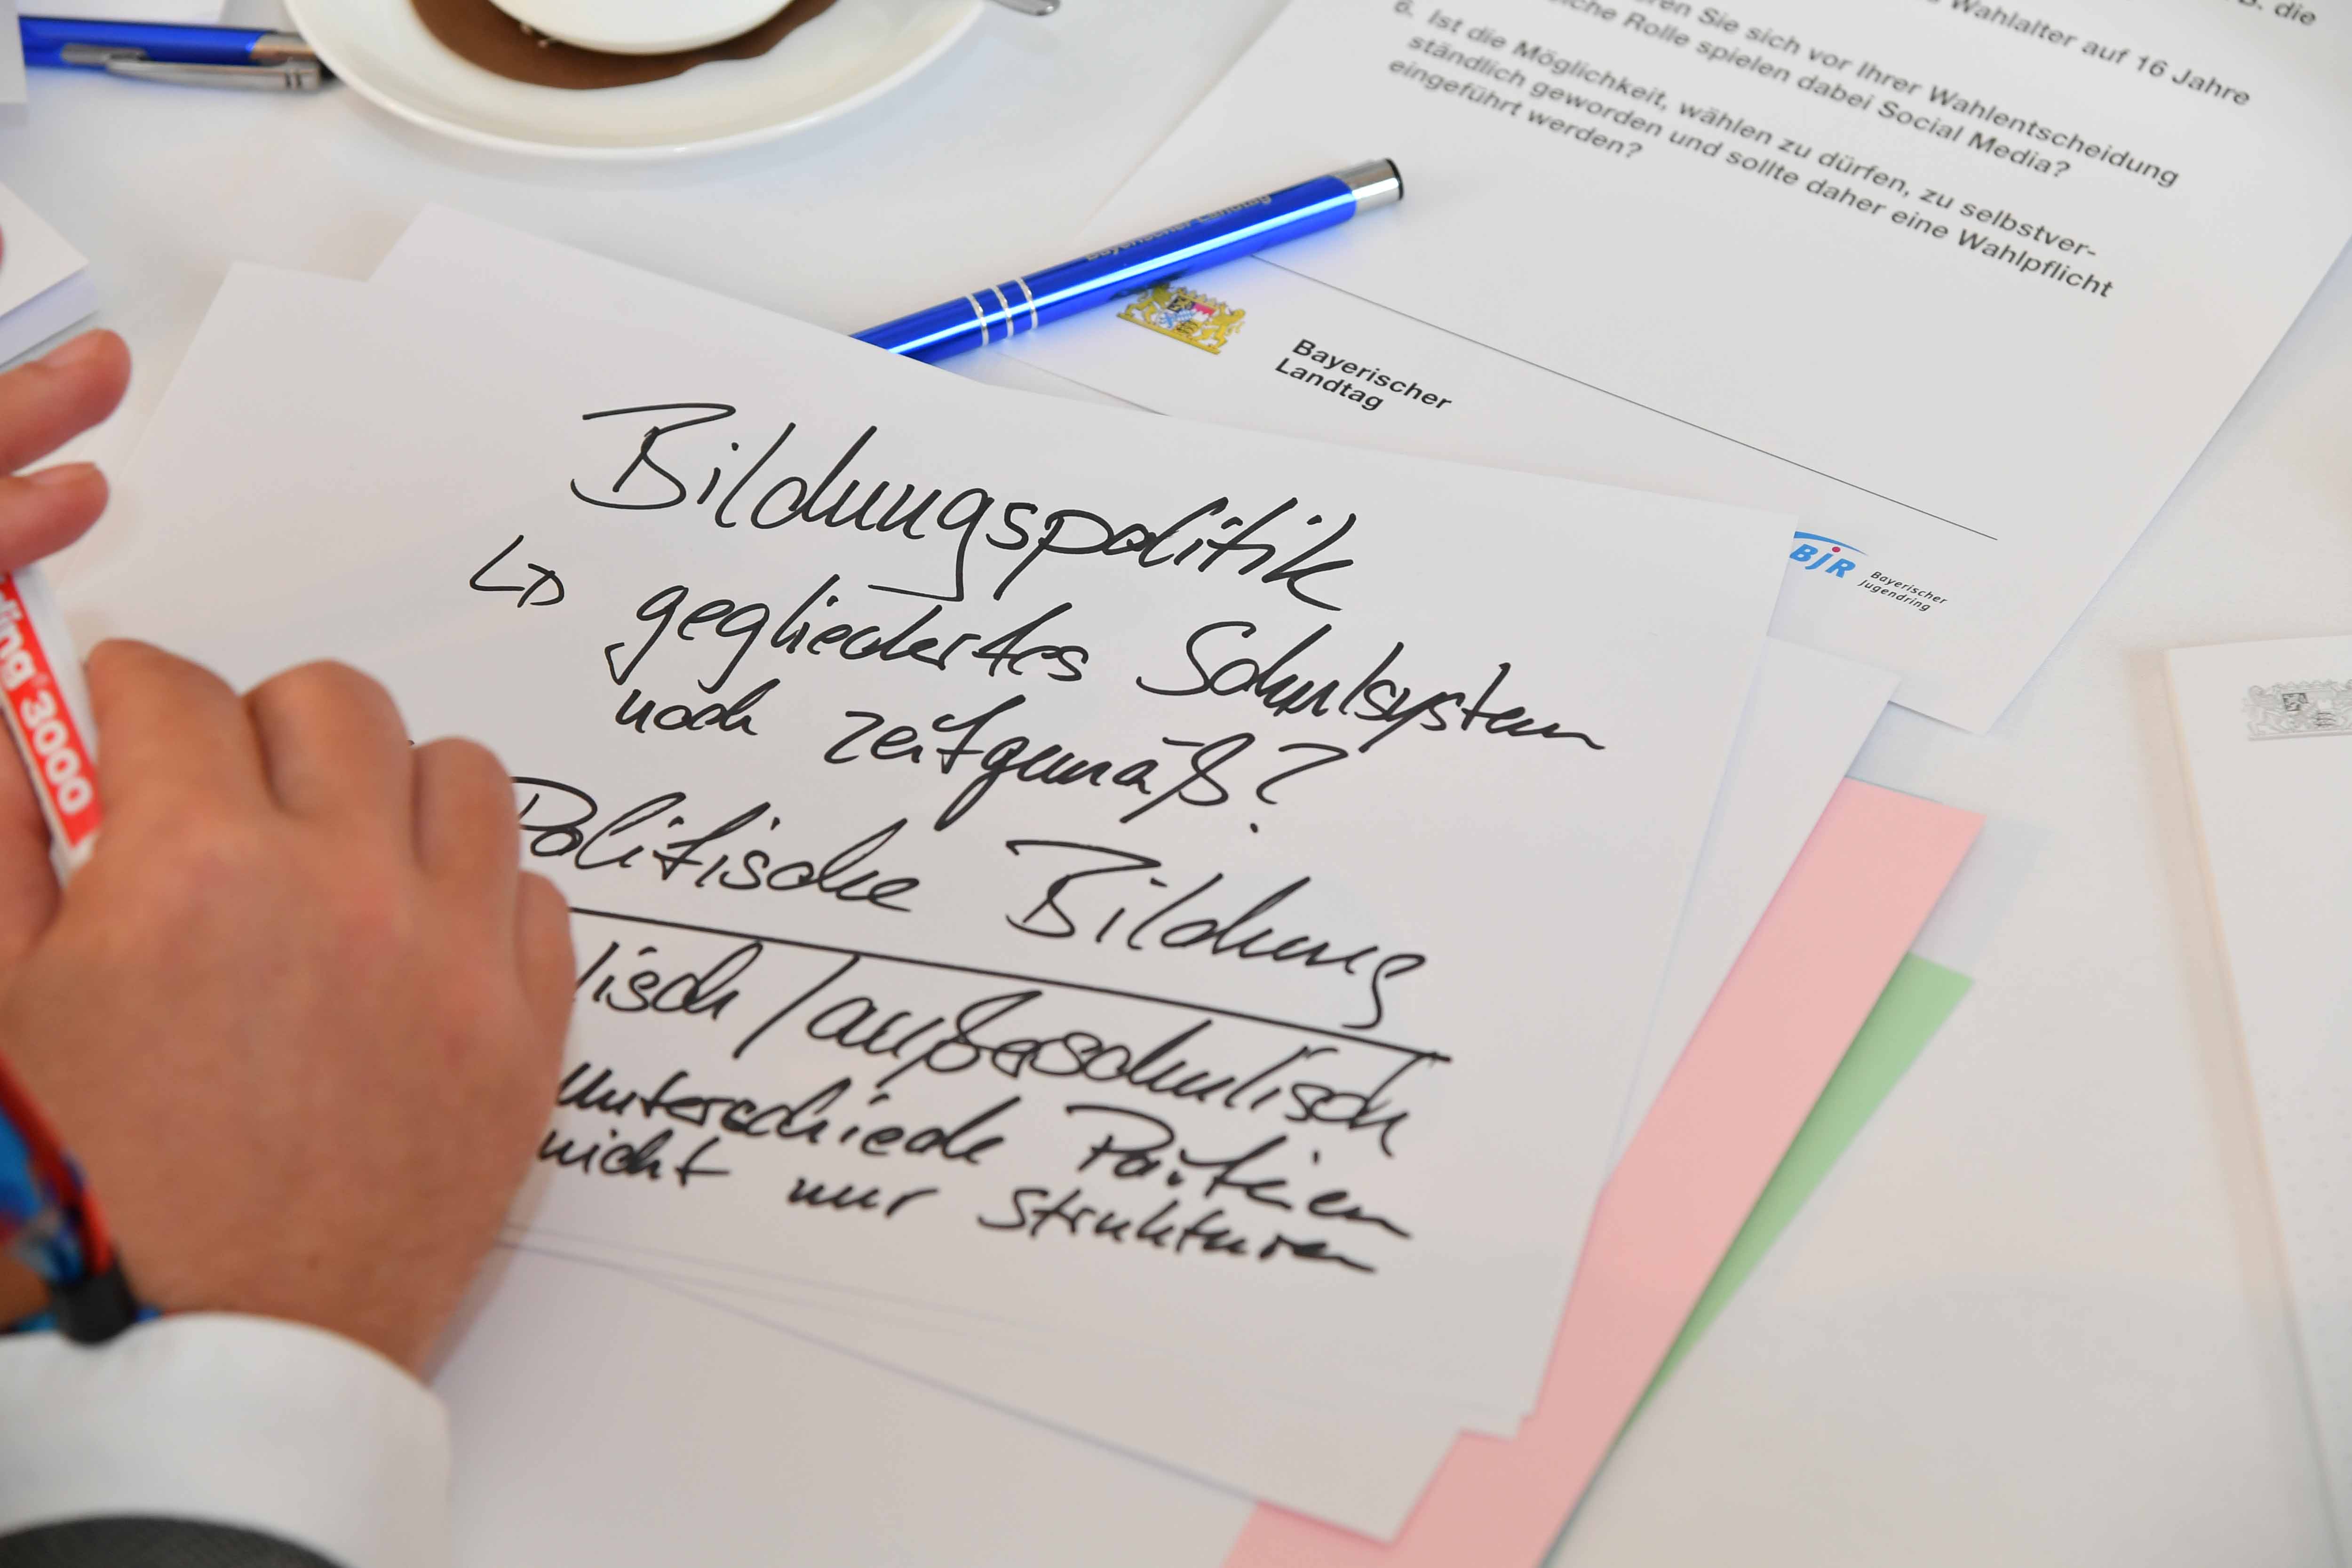 B. die
Wahlalter auf 16 Jahre
ren Sie sich vor Ihrer Wahlentscheidung
lche Rolle spielen dabei Social Media?
6. Ist die Möglichkeit, wählen zu dürfen, zu selbstver-
ständlich geworden und sollte daher eine Wahlpflicht
eingeführt werden?
Bayerischer Landtag
Bayerischer
Landtag
BJR Bayerischer
Jugendring
Bildungspolitik
gegliedertes Schulsystem
noch zeitgemäß?
Politische Bildung
lisch / außerschulisch
Unterschiede Parteien
nicht nur Strukturen
ing 3000